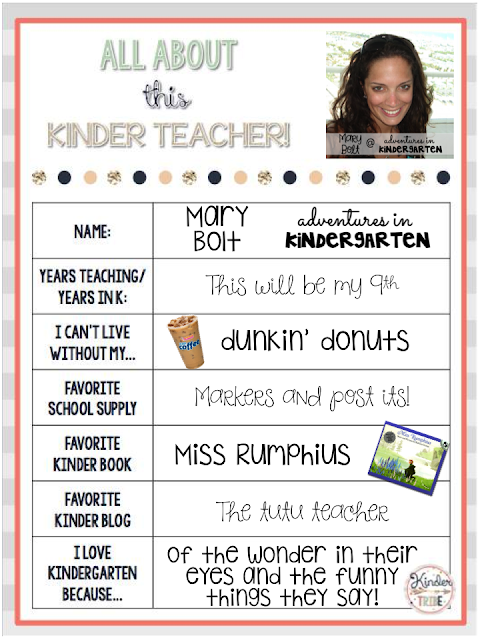 ALL ABOUT
this
KINDER TEACHER!
Mary Bolt @ adventures in KINDERGARTEN
NAME:
Mary Bolt
adventures in KINDERGARTEN
YEARS TEACHING/
YEARS IN K:
This will be my 9th
I CAN'T LIVE
WITHOUT MY...
coffee
dunkin' donuts
FAVORITE
SCHOOL SUPPLY
Markers and post its!
FAVORITE
KINDER BOOK
Miss Rumphius
Miss Rumphius
FAVORITE
KINDER BLOG
The tutu teacher
I LOVE
KINDERGARTEN
BECAUSE...
of the wonder in their
eyes and the funny
things they say!
Kinder
TRIBE